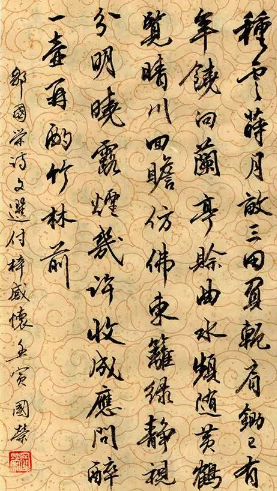 種雲蒔月啟三田負軛肩鋤已有
年饒向蘭亭賒曲水頻隨黃鶴
覽晴川回瞻仿佛東籬綠靜視
分明曉露煙幾許收成應問醉
一壺再酌竹林前
鄒國榮詩文選付梓感懷 國榮